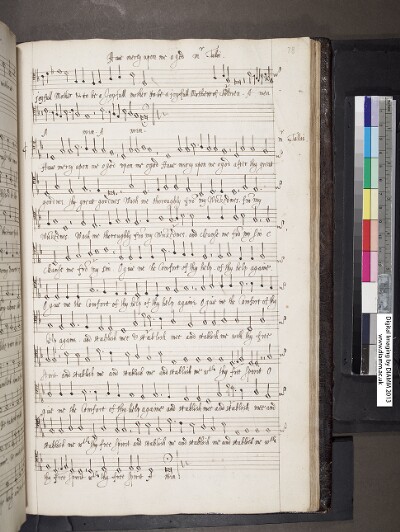 Haue mercy upon me o god mr
Joyfull Mother to be a Joyfull mother to be a joyfull Mother of Children A men
A men A men
mr
Haue mercy upon me o god upon me o god Haue mercy upon me o god after thy great
goodnes thy great goodnes Wash me throughly from my wickednes from my
wickednes Wash me throughly from my wickednes and clense me from my sin &
clense me from my sin O giue me the Comfort of thy help of thy help againe
O giue me the Comfort of thy help of thy help againe O giue me the Comfort of thy
help again and stablish me & stablish me and stablish me with thy free
spirit and stablish me and stablish me and stablish me with thy free spirit O
giue me the Comfort of thy help againe and stablish me and stablish me and
stablish me wth thy free spirit and stablish me and stablish me and stablish me wth
thy free spirit wth thy free spirit A men
Digital Imaging by DIAMM 2013
www.diamm.ac.uk